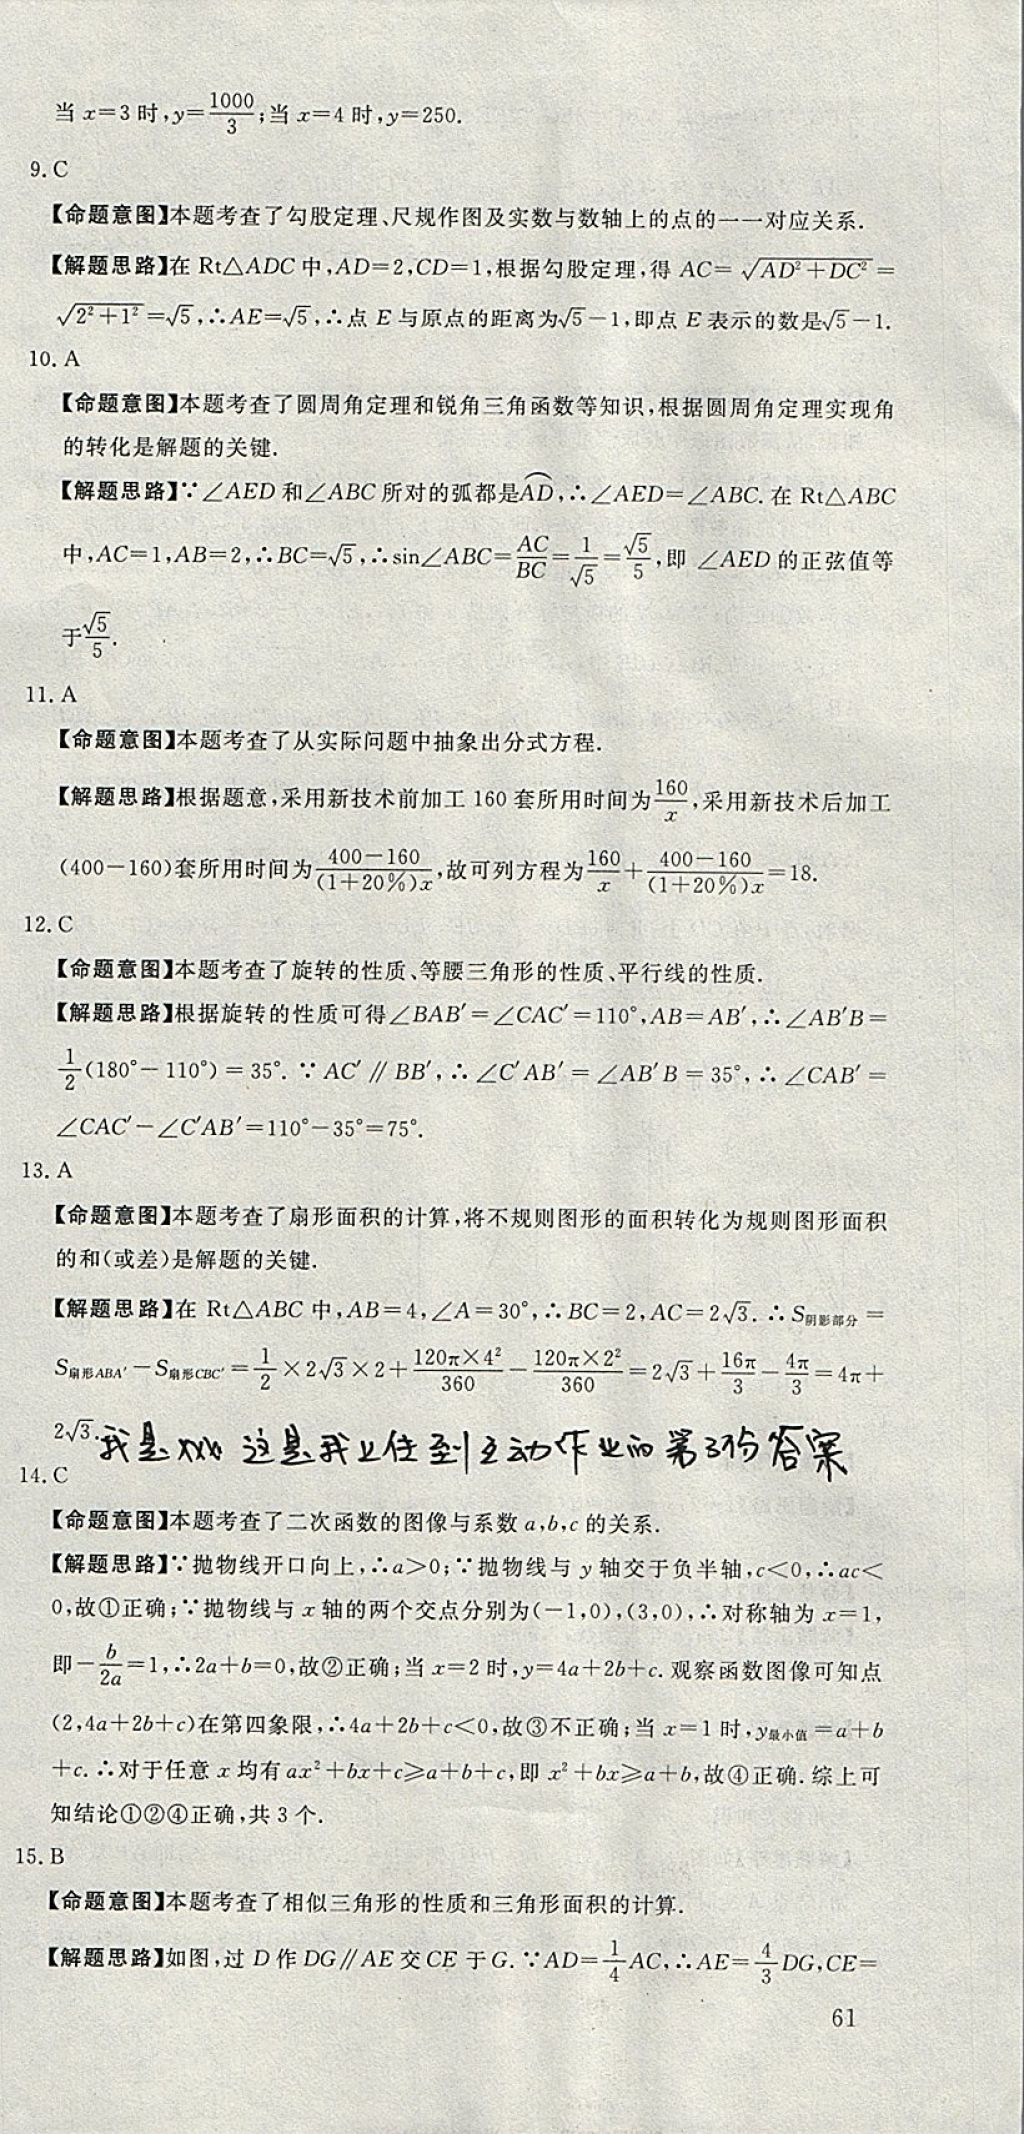 当 x=3 时,y=1000/3;当 x=4 时,y=250.
9. C
【命题意图】本题考查了勾股定理、尺规作图及实数与数轴上的点的一一对应关系.
【解题思路】在 Rt△ADC 中,AD=2,CD=1,根据勾股定理,得 AC=√(AD²+DC²)=
√(2²+1²)=√5,∴AE=√5,∴点 E 与原点的距离为√5-1,即点 E 表示的数是√5-1.
10. A
【命题意图】本题考查了圆周角定理和锐角三角函数等知识,根据圆周角定理实现角
的转化是解题的关键.
【解题思路】∵∠AED 和∠ABC 所对的弧都是AD⌒,∴∠AED=∠ABC. 在 Rt△ABC
中,AC=1,AB=2,∴BC=√5,∴sin∠ABC=AC/BC=1/√5=√5/5,即 ∠AED 的正弦值等
于√5/5.
11. A
【命题意图】本题考查了从实际问题中抽象出分式方程.
【解题思路】根据题意,采用新技术前加工 160 套所用时间为160/x,采用新技术后加工
(400-160)套所用时间为(400-160)/((1+20%)x),故可列方程为160/x+(400-160)/((1+20%)x)=18.
12. C
【命题意图】本题考查了旋转的性质、等腰三角形的性质、平行线的性质.
【解题思路】根据旋转的性质可得∠BAB′=∠CAC′=110°,AB=AB′,∴∠AB′B=
1/2(180°-110°)=35°. ∵AC′∥BB′,∴∠C′AB′=∠AB′B=35°,∴∠CAB′=
∠CAC′-∠C′AB′=110°-35°=75°.
13. A
【命题意图】本题考查了扇形面积的计算,将不规则图形的面积转化为规则图形面积
的和(或差)是解题的关键.
【解题思路】在 Rt△ABC 中,AB=4,∠A=30°,∴BC=2,AC=2√3. ∴S阴影部分=
S扇形ABA′-S扇形CBC′=1/2×2√3×2+120π×4²/360-120π×2²/360=2√3+16π/3-4π/3=4π+
2√3.
我是 xxx 这是我上任到主动作业的第3份答案
14. C
【命题意图】本题考查了二次函数的图像与系数 a,b,c 的关系.
【解题思路】∵抛物线开口向上,∴a>0;∵抛物线与 y 轴交于负半轴,c<0,∴ac<
0,故①正确;∵抛物线与 x 轴的两个交点分别为(-1,0),(3,0),∴对称轴为 x=1,
即-b/2a=1,∴2a+b=0,故②正确;当 x=2 时,y=4a+2b+c. 观察函数图像可知点
(2,4a+2b+c)在第四象限,∴4a+2b+c<0,故③不正确;当 x=1 时,y最小值=a+b
+c. ∴对于任意 x 均有 ax²+bx+c≥a+b+c,即 x²+bx≥a+b,故④正确. 综上可
知结论①②④正确,共 3 个.
15. B
【命题意图】本题考查了相似三角形的性质和三角形面积的计算.
【解题思路】如图,过 D 作 DG∥AE 交 CE 于 G. ∵AD=1/4AC,∴AE=4/3DG,CE=
61